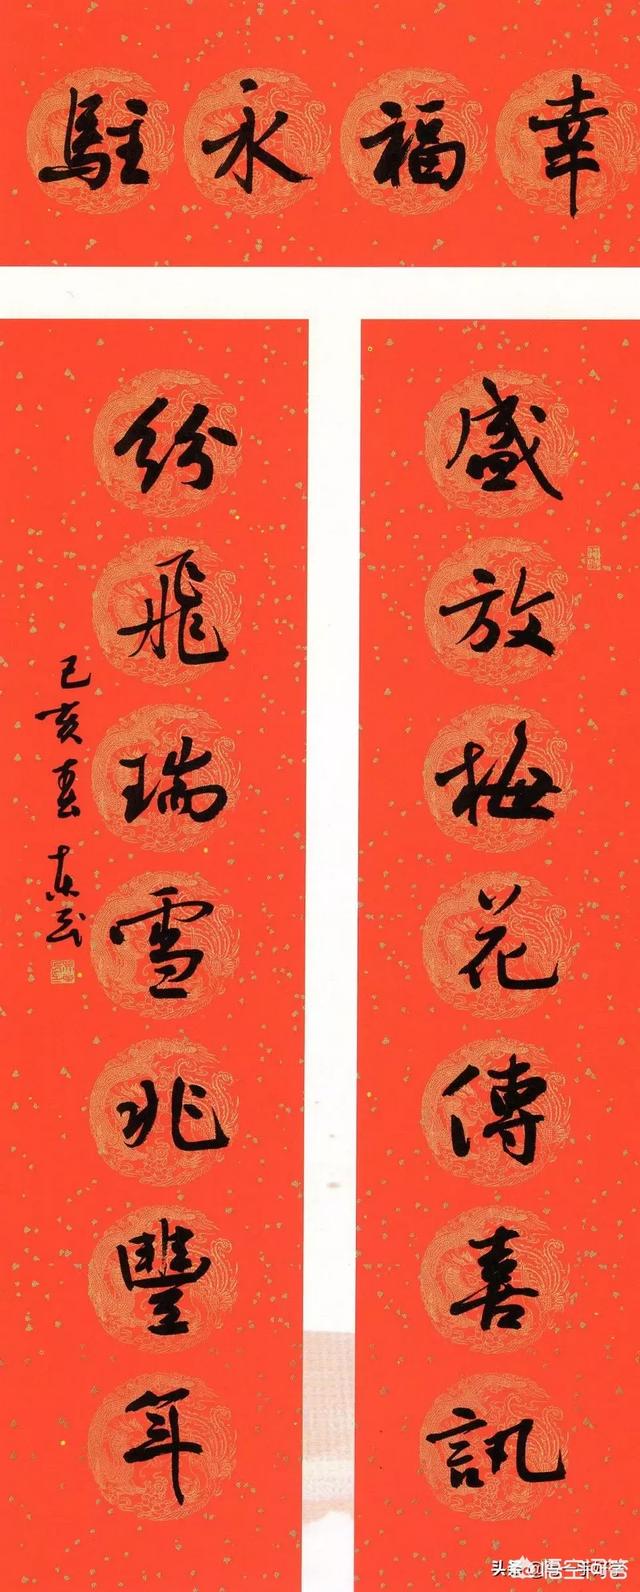 幸福永駐
盛放梅花傳喜訊
紛飛瑞雪兆豐年
己亥春 东云
悟空问答